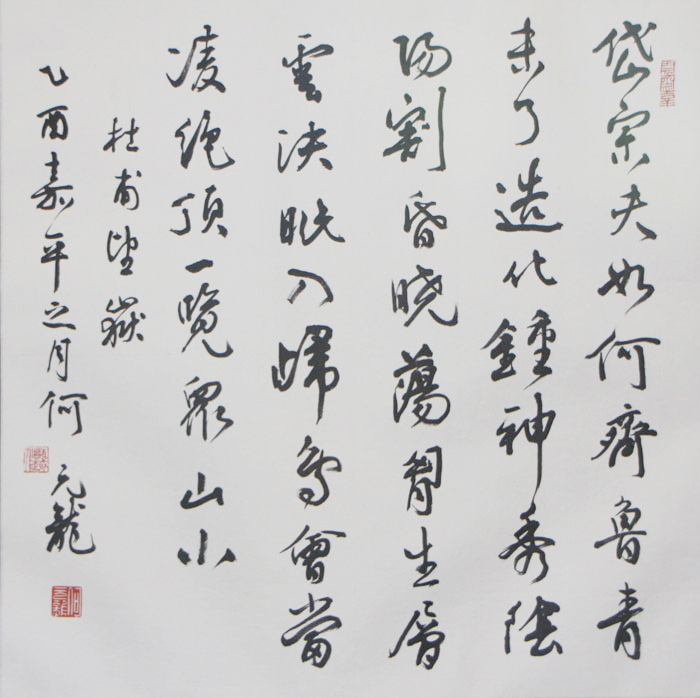 岱宗夫如何齊魯青
未了造化鍾神秀陰
陽割昏曉蕩胷生層
雲決眦入歸鳥會當
凌絕頂一覽眾山小
杜甫望嶽
乙酉嘉平之月何元龍